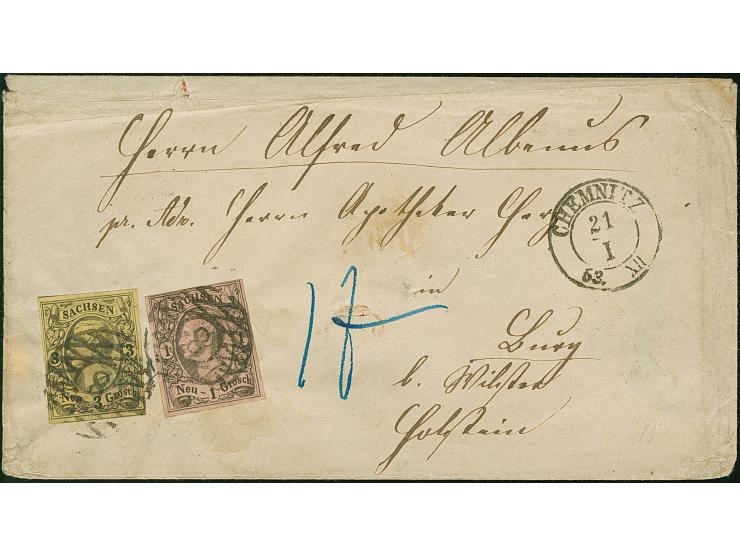 Herrn Alfred Albenus
pr. Adr. Herrn Apotheker Herz
in
Burg
b. Wilster
Holstein
CHEMNITZ
21
I
53.
XII
SACHSEN
3 3
Neu - 3 Grosch
SACHSEN
1 1
Neu - 1 Grosch